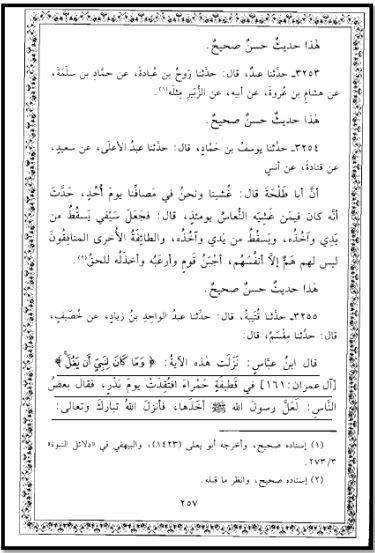 هذا حديثٌ حسنٌ صحيحٌ.
٣٢٥٣ـ حدَّثنا عبدٌ، قال: حدَّثنا رَوحُ بن عُبادةَ، عن حمَّادِ بن سلَمَةَ،
عن هشامِ بن عُروةَ، عن أبيه، عن الزُّبَيرِ مِثلَه(١).
هذا حديثٌ حسنٌ صحيحٌ.
٣٢٥٤ـ حدَّثنا يوسفُ بن حَمَّادٍ، قال: حدَّثنا عبدُ الأعلَى، عن سعيدٍ،
عن قتادةَ، عن أنسٍ
أنَّ أبا طَلْحَةَ قال: غُشينا ونحنُ في مَصافِّنا يومَ أُحُدٍ، حَدَّثَ
أنَّه كان فيمَن غَشِيَه النُّعاسُ يومئذٍ، قال: فجَعَلَ سَيْفي يَسقُطُ من
يَدِي وآخُذُه، ويَسقُطُ من يَدي وآخُذُه، والطائِفَةُ الأُخرى المنافِقونَ
ليس لهم هَمٌّ إلاَّ أنفُسُهُم، أجْبَنُ قومٍ وأرعَبُه وأخذَلُه للحقِّ(٢).
هذا حديثٌ حسنٌ صحيحٌ.
٣٢٥٥ـ حدَّثنا قُتَيبةُ، قال: حدَّثنا عبدُ الواحِدِ بنُ زيادٍ، عن خُصَيفٍ،
قال: حدَّثنا مِقْسَمٌ، قال:
قال ابنُ عبَّاسٍ: نَزَلَت هذه الآيةُ: ﴿وَمَا كَانَ لِنَبِيٍّ أَن يَغُلَّ﴾
[آل عمران: ١٦١] في قَطيفَةٍ حَمْراءَ افتُقِدَتْ يومَ بَدْرٍ، فقال بعضُ
النَّاسِ: لَعَلَّ رسولَ الله ﷺ أخَذَها، فأنزلَ اللهُ تباركَ وتعالى:
(١) إسناده صحيح، وأخرجه أبو يعلى (١٤٢٣)، والبيهقي في «دلائل النبوة»
٣/ ٢٧٣.
(٢) إسناده صحيح، وانظر ما قبله.
٢٥٧